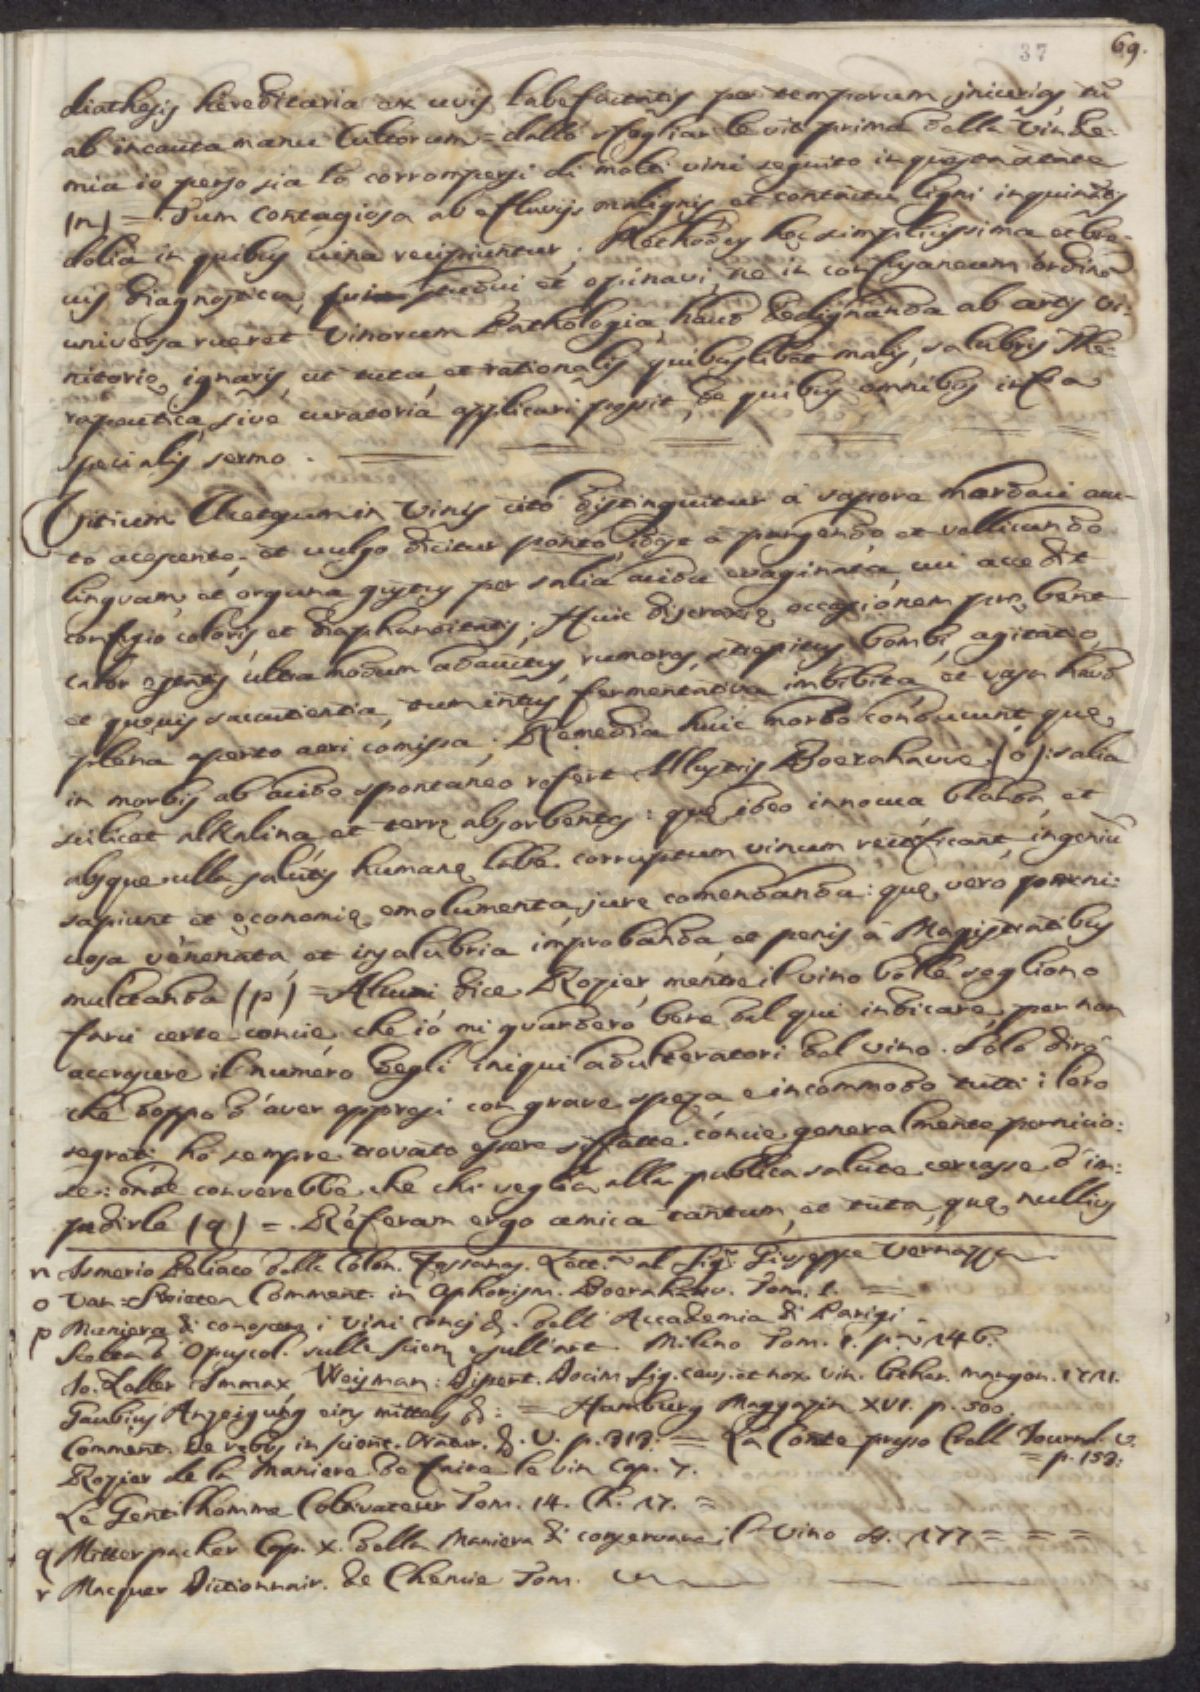 37 69.
diathesis hereditaria ex uvis labefactatis per temporum injurias, tū
ab incauta manu Cultorum = dallo sfogliar le viti prima della Vinde-
mia io penso sia lo corrompersi di molti vini seguito in questa state
(n) = Tum Contagiosa ab efluvijs malignis et contactu ligni inquinatis
dolia in quibus vina recipiuntur. Methodus hęc simplicissima et bre-
vis diagnostica, studui et opinavi, ne in confusaneum ordine
universa rueret Vinorum Pathologia, haud dedignanda ab artis Vi-
nitorię ignaris, ut tuta, et rationalis quibuslibet malis, salubris The-
rapeutica, sive curatoria applicari possit, de quibus omnibus infra
specialis sermo.
Vitium Acetosum in Vinis cito distinguitur a sapore mordaci acu-
to acescente, et vulgo dicitur ponto, idest a pungendo et vellicando
linguam, et organa gustus per salia acida evaginata, cui accedit
confusio coloris et diaphaneitatis. Huic discrasię occasionem prębent
calor ultra modum adauctus, rumores, strepitus, bombi, agitatio,
et quęvis, tum intus fermentativa imbibita, et vasa haud
plena aperto aeri comissa. Remedia huic morbo conducunt quę
in morbis ab acido spontaneo refert Illustris Boerahavve (o): salia
scilicet alKalina, et terrę absorbentes: quę ideo innocua blanda, et
absque ulla salutis humanę labe corruptum vinum rectificant, ingeniū
sapiunt et ęconomię emolumenta, jure comendanda: quę vero perni:
ciosa venenata, et insalubria improbanda, et penis à Magistratibus
mulctanda (p) = Alcuni dice Rozier, mentre il vino bolle sogliono
farvi certe concie, che io mi guarderò bene dal qui indicare, per non
accrescere il numero degli iniqui adulteratori del vino. Solo dirò
che doppo d'aver appresi con grave spesa e incommodo tutti i loro
segreti hò sempre trovato essere siffatte concie generalmente pernicio:
se: onde converebbe che chi veglia alla publica salute cercasse d'im:
pedirle (q) = Referam ergo amica tantum, et tuta, quę nullius
n Ismerio Peliaco della Colon. Fossanes. Lett.ª al Sig.r Giuseppe Vernazza
o Van-Swieten Comment. in Aphorism. Boerahavv. Tom. 1. =
p Maniera di conoscere i Vini concj &. dell' Accademia di Parigi.
Scelta d'Opuscol. sulle scienz e sull'arti. Milano Tom. 1. p. 146.
Io. Zeller Immax. Weisman: Dissert. Docim. Sig. caus. et nox. vin. lithar. mangon. 1721.
Gaubius Anzeigung eins mittels &: = Hamburg Magyazin XVI. p. 500.
Comment. de rebus in scient. Natur. &. V. p. 313. = La Conte presso Crell Journal. V.
= p. 153:
Rozier de la Maniere de faire le vin Cap. 7.
Le Gentilhomme Coltivateur Tom. 14. Ch. 17. =
q Mitterpacher Cap. X. della Maniera di conservare il Vino §. 177 = = =
r Macquer Dictionnair. de Chemie Tom.